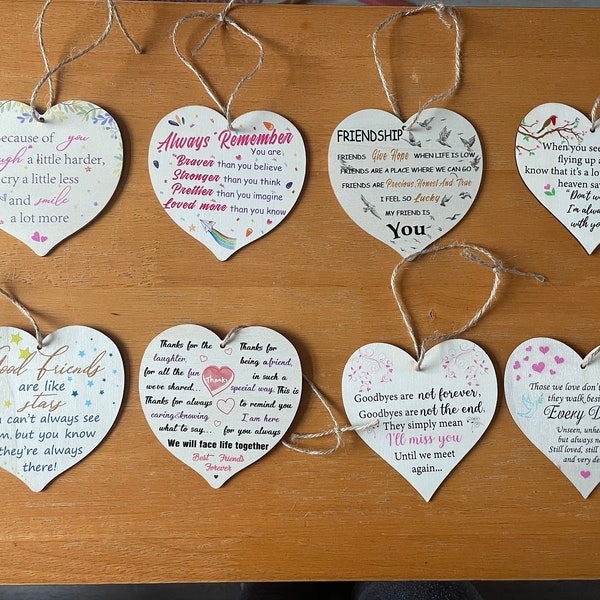 because of you
laugh a little harder,
cry a little less
and smile
a lot more
Always Remember
You are
Braver than you believe
Stronger than you think
Prettier than you imagine
Loved more than you know
FRIENDSHIP
FRIENDS Give Hope WHEN LIFE IS LOW
FRIENDS ARE A PLACE WHERE WE CAN GO
FRIENDS ARE Precious, Honest And True
I FEEL SO Lucky
MY FRIEND IS
You
When you see
flying up a
know that it's a lo
heaven sa
"Don't w
I'm alwa
with yo
Good friends
are like
stars
can't always see
m, but you know
they're always
there!
Thanks for the
laughter
for all the fun
we've shared...
Thanks for always
caring & knowing
what to say...
Thanks for
being a friend,
in such a
special way. This is
to remind you
I am here
for you always
Thanks
We will face life together
Best Friends
Forever
Goodbyes are not forever,
Goodbyes are not the end,
They simply mean
I'll miss you
Until we meet
again...
Those we love don't
they walk besi
Every D
Unseen, unhe
but always n
Still loved, still
and very de